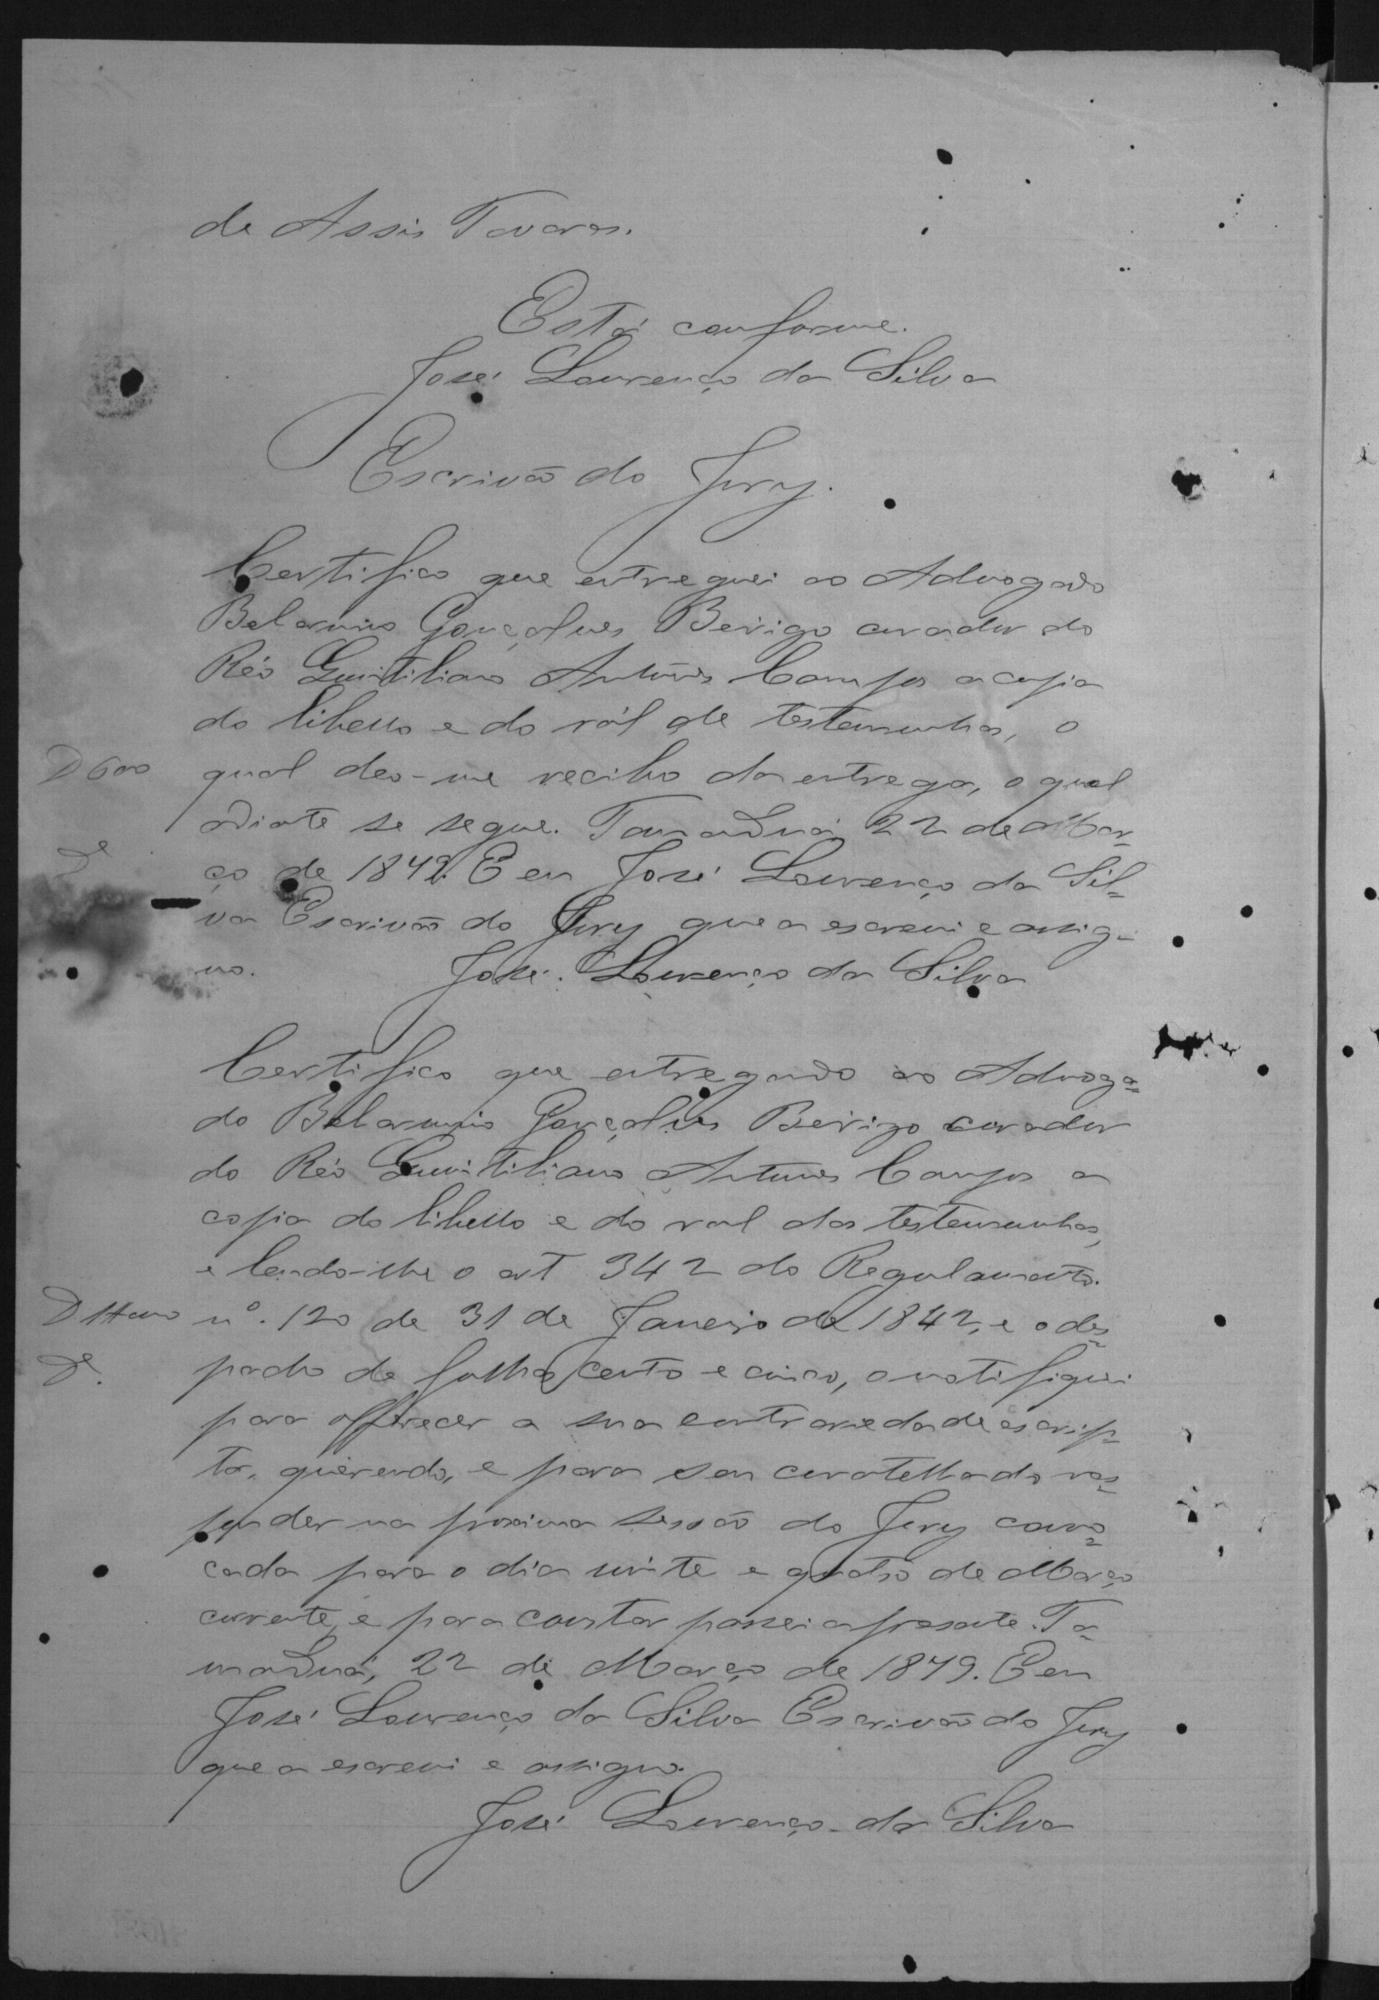 de Assis Tavares.
Está conforme.
José Lourenço da Silva
Escrivão do Jury.
Certifico que entreguei ao Advogado
Belarmino Gonçalves Berigo curador do
Réo Quintiliano Antunes Campos a copia
do libello e do ról de testemunhas, o
D 600
qual deo-me recibo da entrega, o qual
adiante se segue. Tamanduá, 22 de Mar=
ço de 1879. E eu José Lourenço da Sil=
va Escrivão do Jury que a escrevi e assig=
no. José Lourenço da Silva
Certifico que entregando ao Advoga=
do Belarmino Gonçalves Berigo curador
do Réo Quintiliano Antunes Campos a
copia do libello e do rol das testemunhas,
e lendo-lhe o art 342 do Regulamento.
nº. 120 de 31 de Janeiro de 1842, e o des=
pacho de folhas cento e cinco, o notifiquei
para offerecer a sua contrariedade escrip=
ta, querendo, e para seu curatellado res=
ponder na proxima sessão do Jury convo=
cada para o dia vinte e quatro de Março
corrente, e para constar passei a presente. Ta=
manduá, 22 de Março de 1879. E eu
José Lourenço da Silva Escrivão do Jury
que a escrevi e assigno.
José Lourenço da Silva